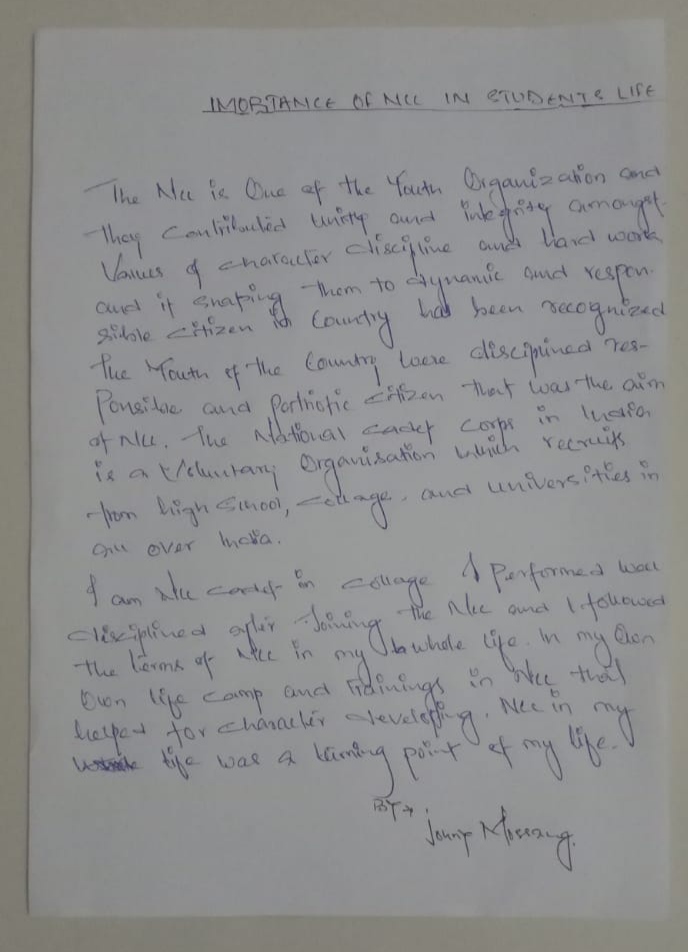 IMORTANCE OF NCC IN STUDENTS LIFE
The Ncc is One of the Youth Organization and
they contributed unity and integrity amongst
Values of character discipline and hard work
and it shaping them to dynamic and respon-
sible citizen in Country had been recognized
the Youth of the Country were disciplined res-
ponsible and partriotic citizen that was the aim
of Ncc. The National cadet corps in India
is a Voluntary Organisation which recruits
from high School, collage, and universities in
all over India.
I am Ncc cadet in collage I performed well
disciplined after Joining the Ncc and I followed
the terms of Ncc in my whole life. In my Own
Own life camp and trainings in Ncc that
helped for character developing. Ncc in my
life was a turning point of my life.
BY→
Jonny Mossang.